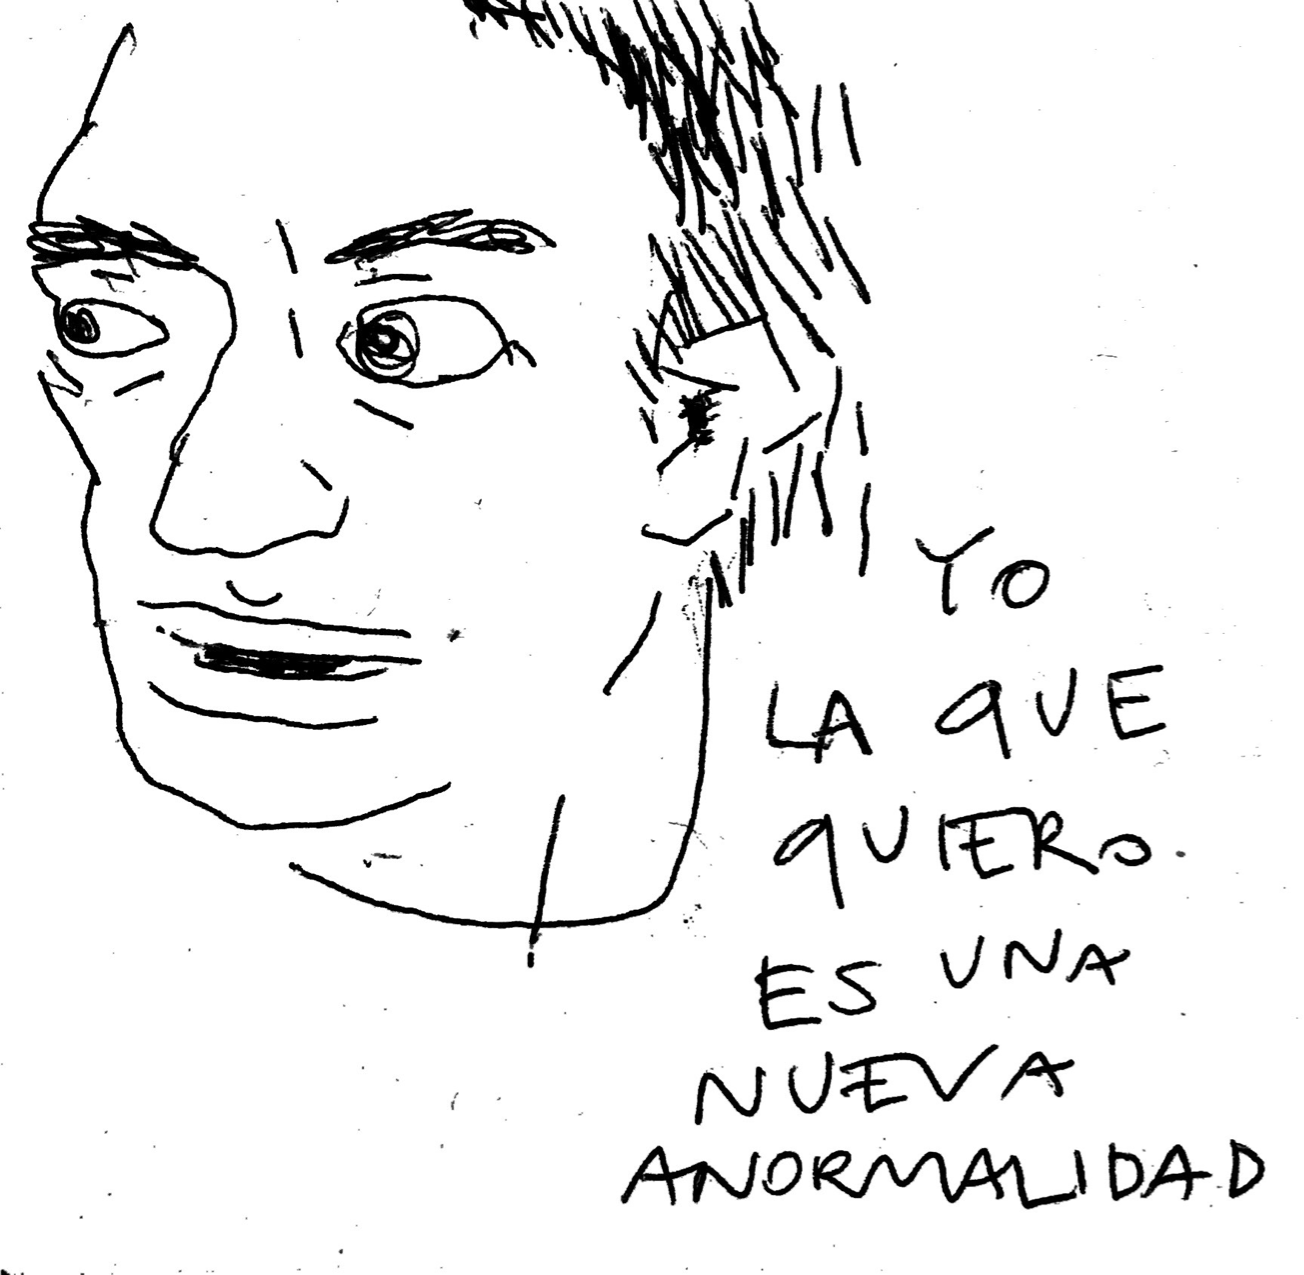 YO
LA QUE
QUIERO
ES UNA
NUEVA
ANORMALIDAD